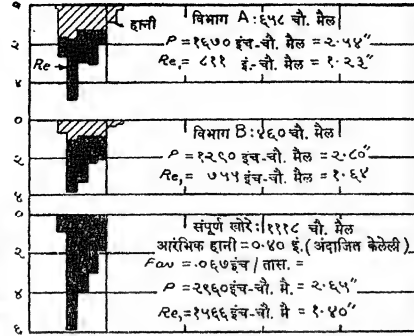 ०
२
४
हानी
Re
विभाग A : ६५८ चौ. मैल
P = १६७० इंच-चौ. मैल = २·५४"
Re₁ = ८११ इं.- चौ. मैल = १·२३"
०
२
४
विभाग B : ४६० चौ. मैल
P = १२९० इंच-चौ. मैल = २·८०"
Re₁ = ७५५ इंच-चौ. मैल = १·६४
०
२
४
६
संपूर्ण खोरे : १११८ चौ. मैल
आरंभिक हानी = ०·४० इं. (अंदाजित केलेली)
Fav = ·०६७इंच / तास. =
P = २९६०इंच-चौ. मै. = २·६५"
Re₁ = १५६६इंच-चौ. मै = १·४०"